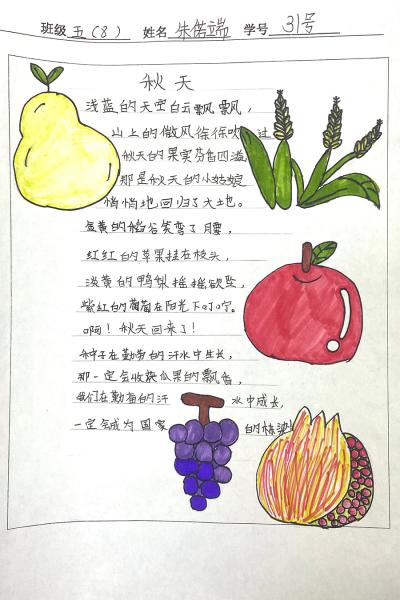 班级 五（8） 姓名 朱偌端 学号 31号
秋天
浅蓝的天空白云飘飘，
山上的微风徐徐吹过
秋天的果实芬香四溢，
那是秋天的小姑娘
悄悄地回归了大地。
金黄的稻谷笑弯了腰，
红红的苹果挂在枝头，
淡黄的鸭梨摇摇欲坠，
紫红的葡萄在阳光下叮咛。
啊！秋天回来了！
种子在勤劳的汗水中生长，
那一定会收获瓜果的飘香，
我们在勤奋的汗水中成长，
一定会成为国家的栋梁！